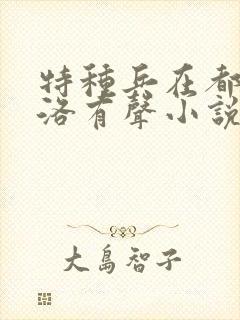 特種兵在都
洛有聲小說
大島智子